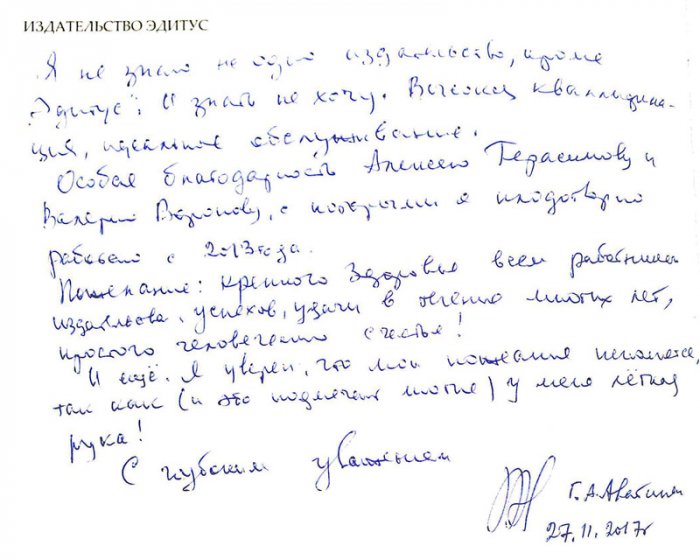 ИЗДАТЕЛЬСТВО ЭДИТУС
Я не знаю не одно издательство, кроме
"Эдитус", и знать не хочу. Высокая квалифика-
ция, идеальное обслуживание.
Особая благодарность Алексею Герасимову и
Валерию Воронову, с которыми я плодотворно
работаю с 2013 года.
Пожелание: крепкого здоровья всем работникам
издательства, успехов, удачи в течение многих лет,
простого человеческого счастья!
И ещё. Я уверен, что мои пожелания исполнятся,
так как (и это подмечают многие) у меня лёгкая
рука!
С глубоким уважением
Г.А.
27.11.2017г